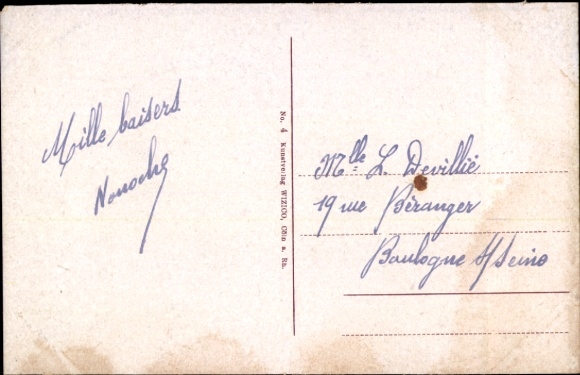 Mille baisers
Nonoche
No. 4 Kunstverlag WIZICO, Cöln a. Rh.
Mlle L. Devillié
19 rue Béranger
Boulogne s/Seine